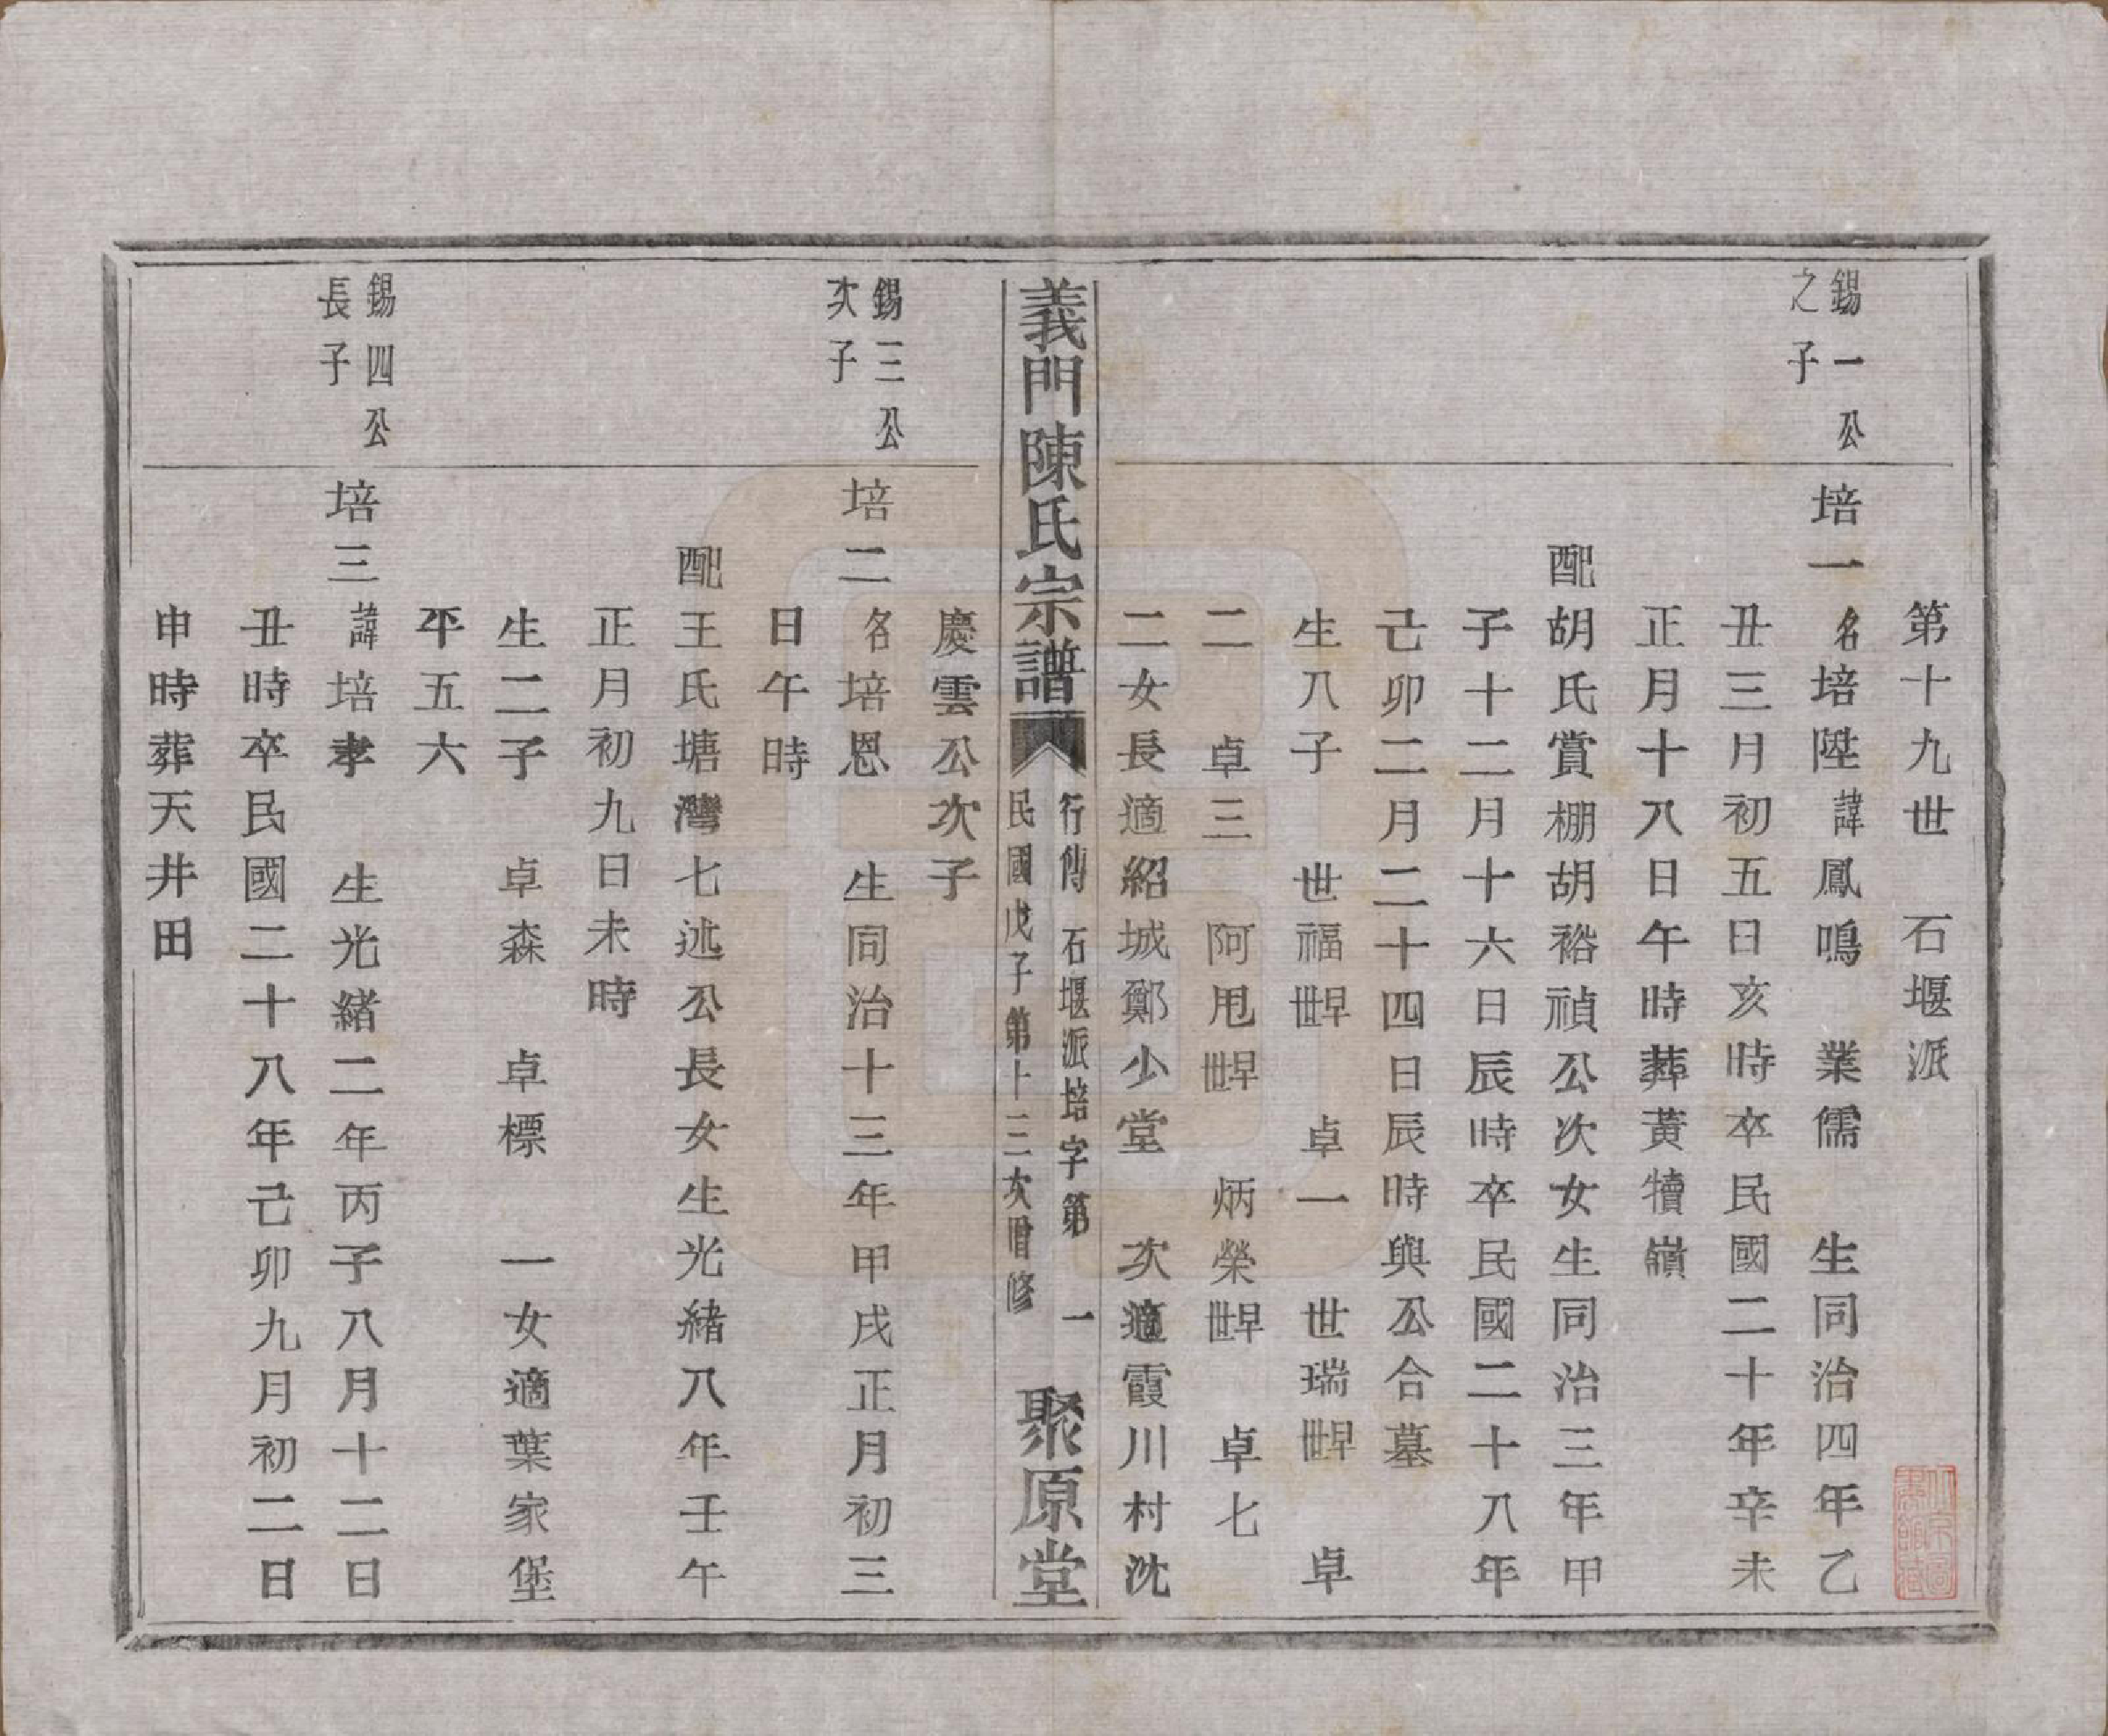 第十九世　石堰派
錫一公
之子
培一名培陞諱鳳鳴　業儒　生同治四年乙
丑三月初五日亥時卒民國二十年辛未
正月十八日午時葬黃犢嶺
配胡氏賞棚胡裕禎公次女生同治三年甲
子十二月十六日辰時卒民國二十八年
己卯二月二十四日辰時與公合墓
生八子　世福世早　卓一　世瑞世早　卓
二　卓三　阿甩世早　炳榮世早　卓七
二女長適紹城鄭少堂　次適霞川村沈
義門陳氏宗譜
行傳　石堰派培字第　一
民國戊子第十三次增修
聚原堂
慶雲公次子
錫三公
次子
培二名培恩　生同治十三年甲戌正月初三
日午時
配王氏塘灣七述公長女生光緒八年壬午
正月初九日未時
生二子　卓森　卓標　一女適葉家堡
平五六
錫四公
長子
培三諱培孝　生光緒二年丙子八月十二日
丑時卒民國二十八年己卯九月初二日
申時葬天井田